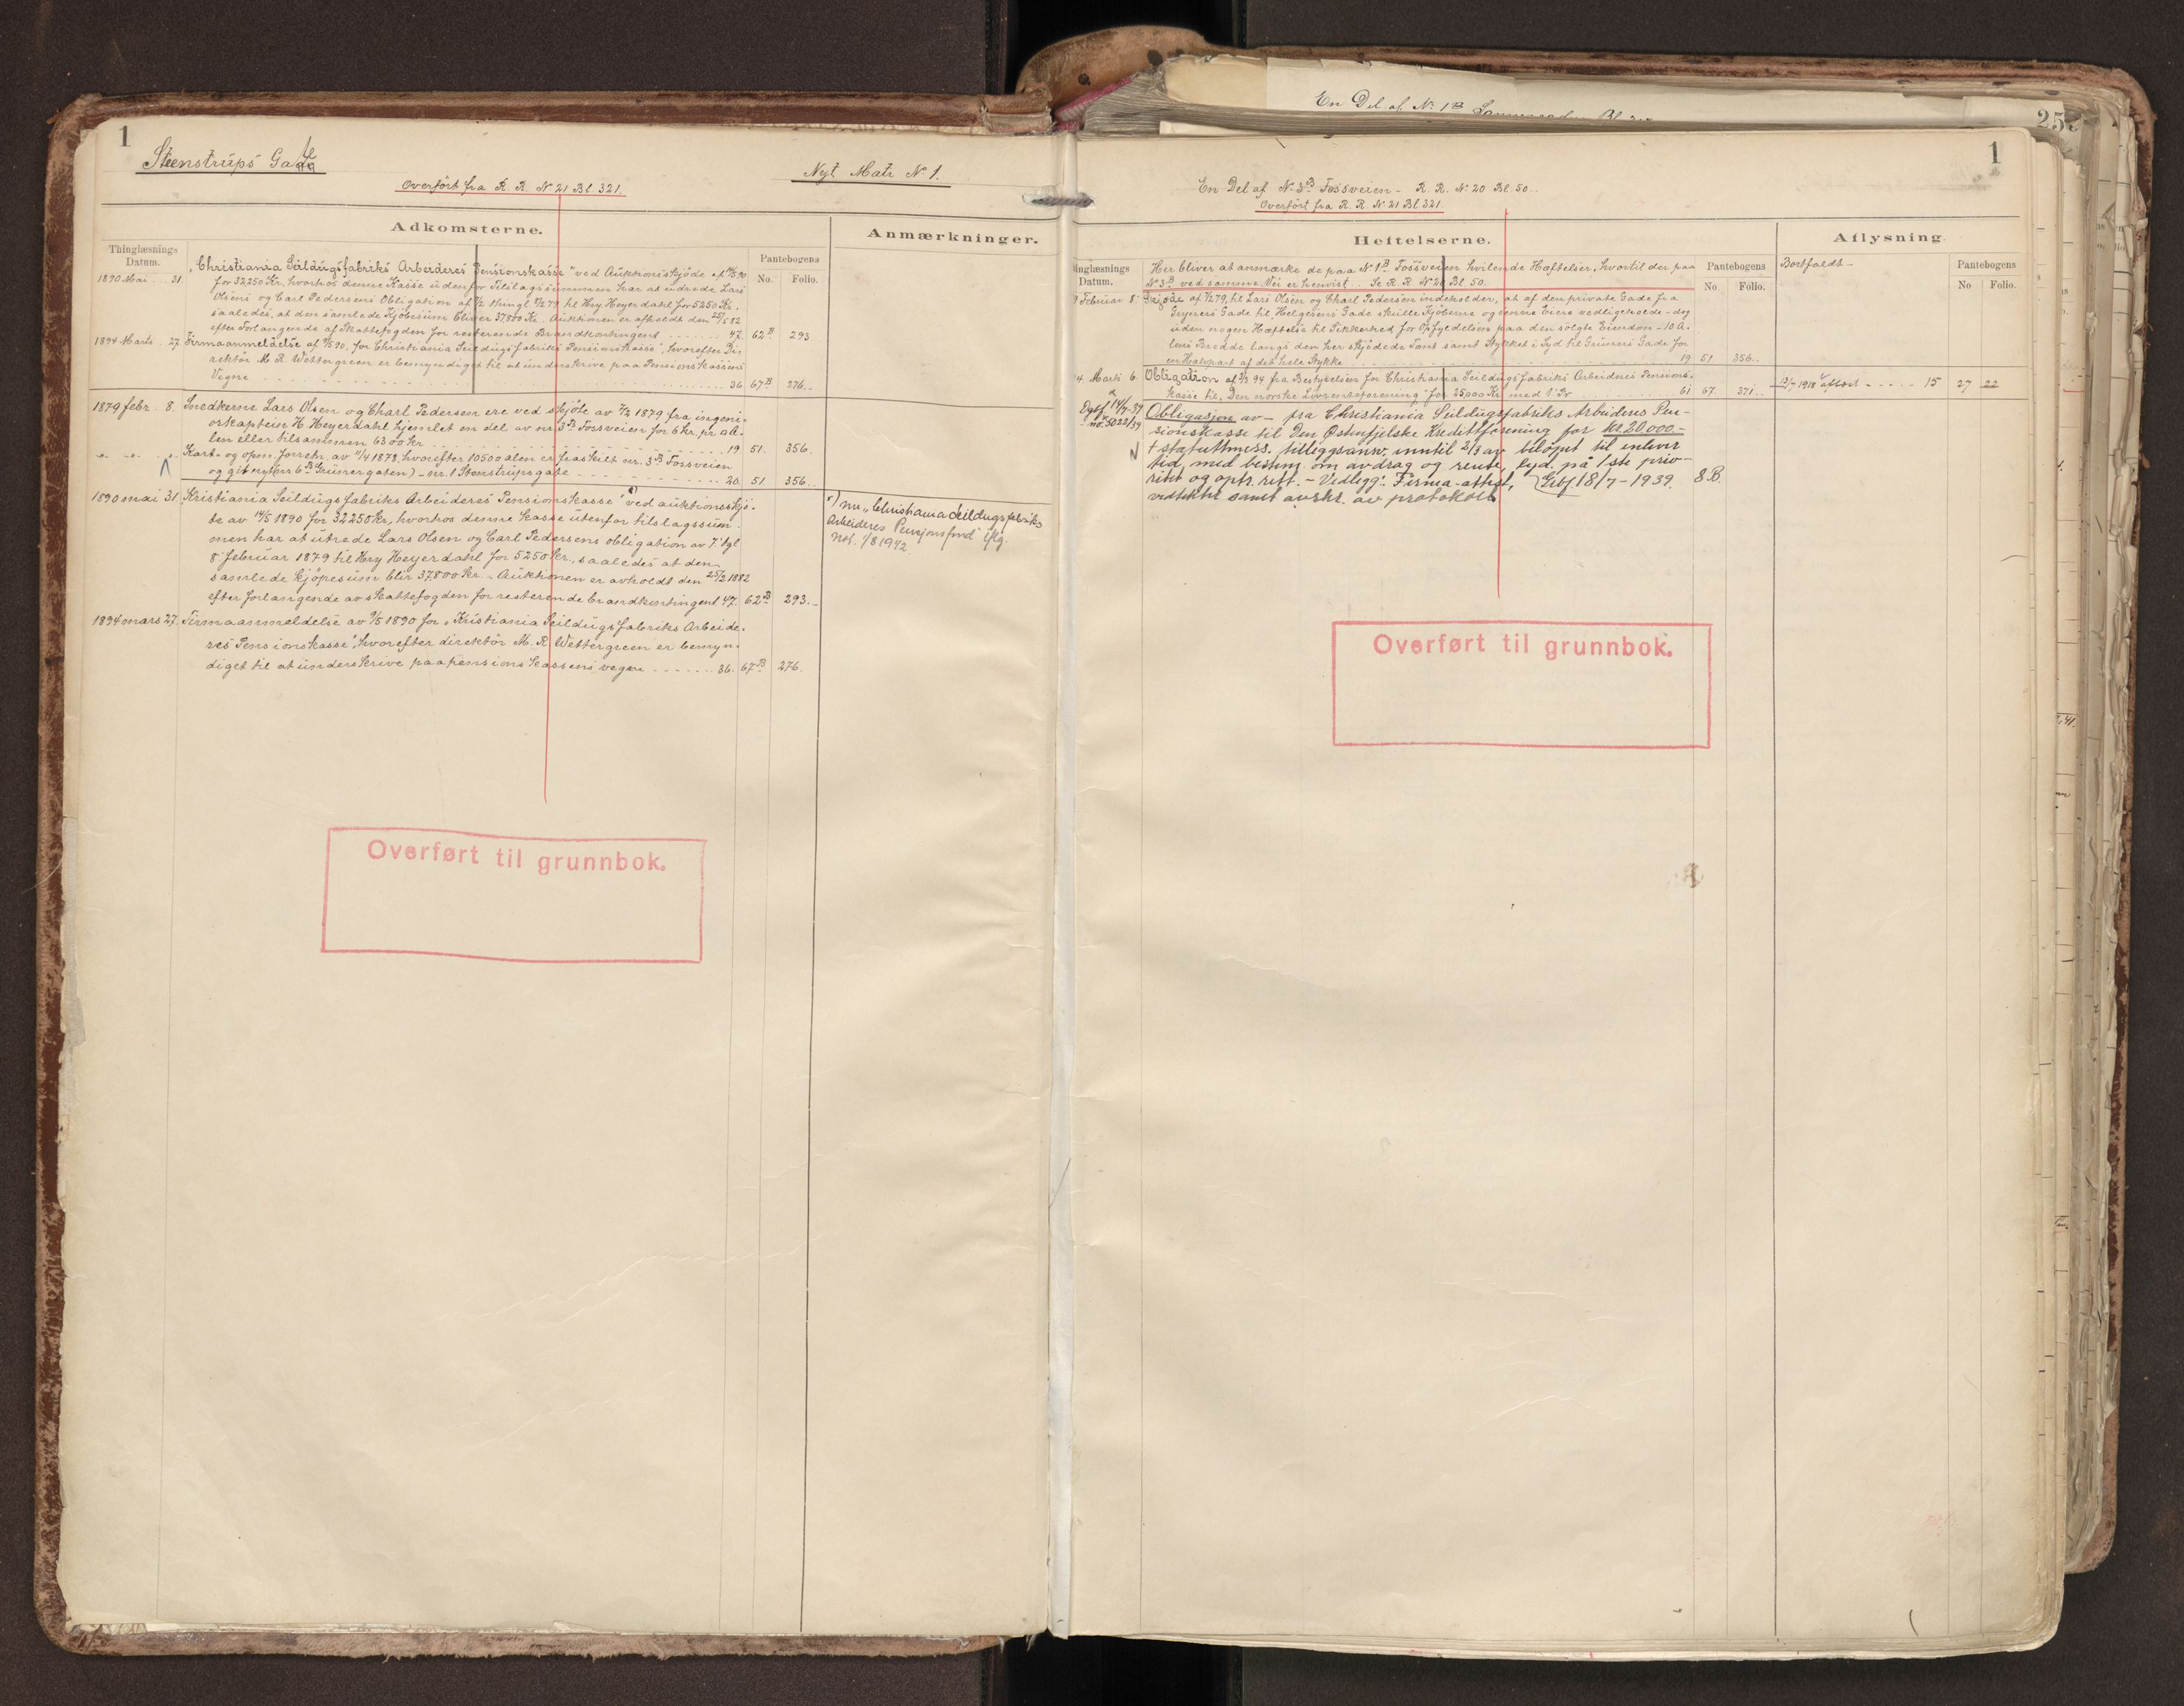 1
Steenstrups Gade
Overført fra R. R. N 21 Bl. 321.
Nyt Matr N 1.
Adkomsterne.
Anmærkninger.
Thinglæsnings
Datum.
Pantebogens
No. Folio.
1890 Mai 31. „Christiania Seildugsfabriks Arbeideres Pensionskasse" ved Auktionsskjøde af 14/5 90
for 32250 Kr, hvorhos denne Kasse udenfor Tilslagssummen har at udrede Lars
Olsens og Carl Pedersens Obligation af 7/2 thingl 8/2 79 til Hny Heyerdahl for 5250 Kr.,
saaledes, at den samlede Kjøbesum bliver 37,800 Kr. Auktionen er afholdt den 25/2 82
efter Forlangende af Skattefogden for resterende Brandkontingent 47. 62B 293
1894 Marts 27. Firmaanmeldelse af 9/5 90, for Christiania Seildugsfabriks Pensionskasse", hvorefter Di-
rektør M. R. Wettergreen er bemyndiget til at underskrive paa Pensionskassens
Vegne 36 67B 276.
1879 febr. 8. Snedkerne Lars Olsen og Charl Pedersen ere ved skjøte av 7/2 1879 fra ingeni-
ørkaptein H. Heyerdahl hjemlet en del av nr. 3B Fossveien for 6 kr. pr. a A-
len eller tilsammen 6300 kr. 19 51. 356.
Kart- og opm. forretn. av 11/4 1878, hvorefter 10500 alen er fraskilt nr. 3B Fossveien
og git nyt nr. 6B Grünergaten) - nr. 1 Stenstrupsgate 20. 51 356.
1890 mai 31. „Kristiania Seildugsfabriks Arbeideres Pensionskasse" ved auktionsskjø-
te av 14/5 1890 for 32250 kr., hvorhos denne kasse utenfor tilslagssum-
men har at utrede Lars Olsen og Carl Pedersens obligation av 7. tgl
8 februar 1879 til Hny Heyerdahl for 5250 kr., saaledes at den
samlede kjøpesum blir 37,800 kr. - Auktionen er avholdt den 25/2 1882
efter forlangende av skattefogden for resterende brandkontingent 47. 62B 293.
1894 mars 27. Firmaanmeldelse av 9/5 1890 for „Kristiania Seildugsfabriks Arbeide-
res Pensionskasse", hvorefter direktør M. R. Wettergreen er bemyn-
diget til at underskrive paa pensionskassens vegne 36. 67B 276.
*) nu „Christiania Seildugsfabriks
Arbeideres Pensjonsfond" iflg.
not. 1/8 1942.
Overført til grunnbok.
En Del af N. 1B
25
1
En Del af N. 3B Fossveien - R. R. N. 20 Bl. 50.
Overført fra R. R. N 21 Bl. 321.
Heftelserne.
Aflysning
inglæsnings
Datum.
Pantebogens
No. Folio.
Pantebogens
No Folio.
Her bliver at anmærke de paa N 1B Fossveien hvilende Hæftelser, hvortil der paa
N 3B ved samme Vei er henvist. Se R. R. N 20 Bl. 50.
Bortfaldt -
9 Februar 8. Skjøde af 7/2 79, til Lars Olsen og Charl Pedersen indeholder, at af den private Gade fra
Gruners Gade til Helgesens Gade skulle Kjøberne og senere Eiere vedligeholde - dog
uden nogen Hæftelse til Sikkerhed for Opfyldelsen paa den solgte Eiendom - 10 A-
lens Bredde langs den her skjødede Tomt samt Stykket i Syd til Gruners Gade for
en Halvpart af det hele Stykke 19 51 356.
4. Marts 6. Obligation af 3/3 94 fra Bestyrelsen for Christiania Seildugsfabriks Arbeideres Pensions-
kasse til „Den norske Livrenteforening" for 25,000 Kr. med 1' Pr 61 67. 371.
15/7 1918 Aflæst 15 27 22
Dgbf 14/7-39
no. 5022/39
Obligasjon av - fra Christiania Seildugsfabriks Arbeideres Pen-
sionskasse til Den Østenfjelske Kredittforening for kr. 20.000.-
+ statuttmess. tilleggsansv. inntil 2/3 av beløpet til enhver
tid, med bestem. om avdrag og rente, lyd. på 1ste prio-
ritet og optr. rett. - Vedlegg: Firma-attest,
vedtekter samt avskr. av protokoll. Exbf 18/7-1939. 8B.
Overført til grunnbok.